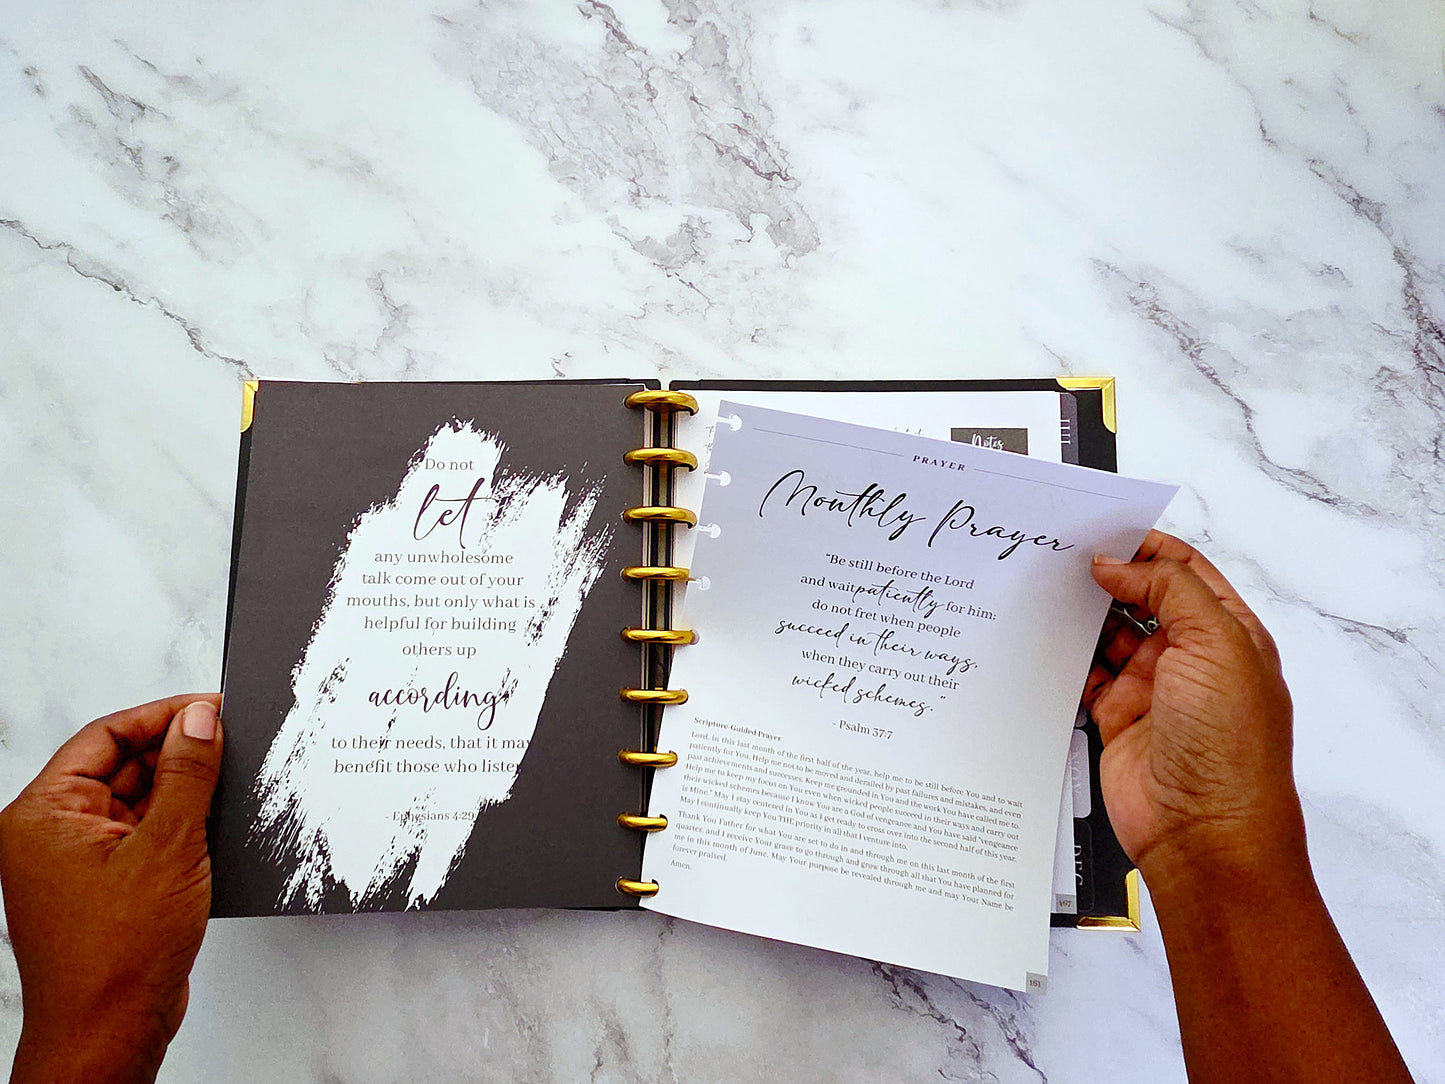 Do not
let
any unwholesome
talk come out of your
mouths, but only what is
helpful for building
others up
according
to their needs, that it may
benefit those who listen
- Ephesians 4:29
Notes
PRAYER
Monthly Prayer
"Be still before the Lord
and wait patiently for him;
do not fret when people
succeed in their ways,
when they carry out their
wicked schemes."
- Psalm 37:7
Scripture-Guided Prayer
Lord, in this last month of the first half of the year, help me to be still before You and to wait
patiently for You. Help me not to be moved and derailed by past failures and mistakes, and even
past achievements and successes. Keep me grounded in You and the work You have called me to.
Help me to keep my focus on You even when wicked people succeed in their ways and carry out
their wicked schemes because I know You are a God of vengeance and You have said "vengeance
is Mine." May I stay centered in You as I get ready to cross over into the second half of this year.
May I continually keep You THE priority in all that I venture into.
Thank You Father for what You are set to do in and through me on this last month of the first
quarter, and I receive Your grace to go through and grow through all that You have planned for
me in this month of June. May Your purpose be revealed through me and may Your Name be
forever praised.
Amen.
161
167
NOV
DEC